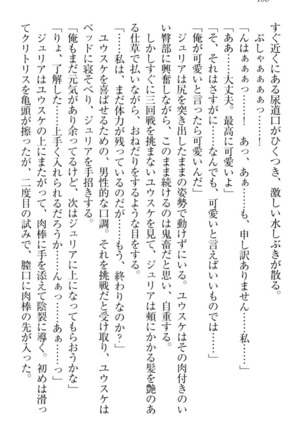 すぐ近くにある尿道口がひくつき、激しい水しぶきが散る。
ぷしゃぁぁぁぁっ……！
「んはぁぁぁっ……！　あっ、あぁっ……も、申し訳ありません……私……」
「ああ……大丈夫。最高に可愛いよ」
「そ、それはさすがに……でも、可愛いと言われても……なんでも、可愛いと言えばいいわけでは……」
「俺が可愛いと言ったら可愛いんだ」
ジュリアは尻を突き出したままの姿勢で動けずにいる。ユウスケはその肉付きのいい臀部に興奮しながら、このまま続けるのは鬼畜だと思い、自重する。
しかしすぐに二回戦を挑まないユウスケを見て、ジュリアは頬にかかる髪を艶のある仕草で払いながら、おねだりをするような目をする。
「……私は、まだ体力が残っているのだが……もう、終わりなのか？」
ユウスケを喜ばせるための、男性的な口調。それを挑戦だと受け取り、ユウスケはベッドに寝そべり、ジュリアを手招きする。
「俺もまだ元気が余ってるけど、次はジュリアに上になってもらおうかな」
「りょ、了解した……上手く入れられるだろうか……んぁっ……あぁ……っ」
ジュリアはユウスケの上にまたがって、肉棒に手を添えて陰裂に導く。初めは滑ってクリトリスを亀頭が擦ったが、二度目の試みで、膣口に肉棒の先が入った。